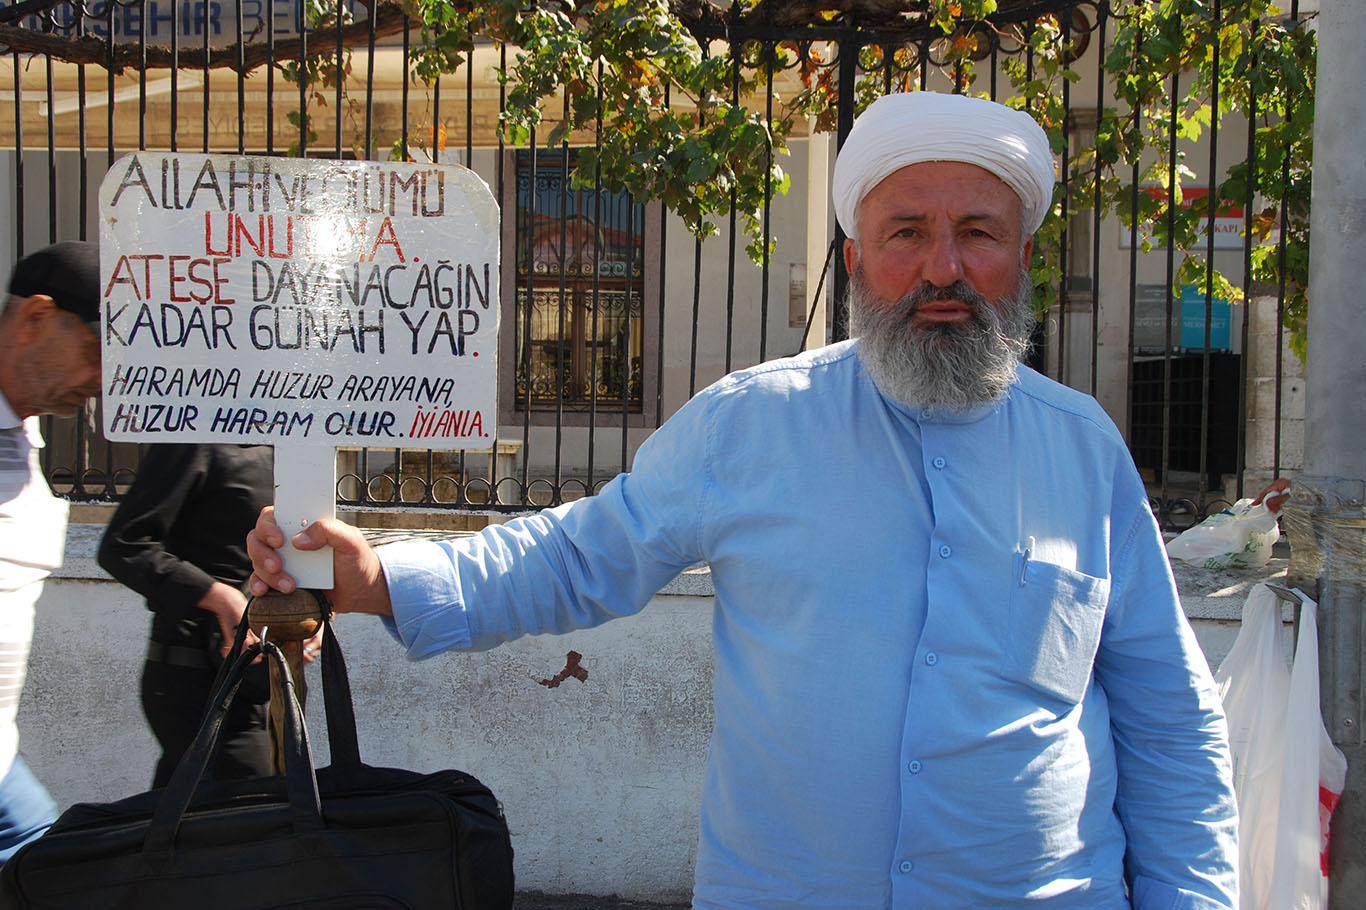 ALLAH-I VE ÖLÜMÜ
UNUTMA.
ATEŞE DAYANACAĞIN
KADAR GÜNAH YAP.
HARAMDA HUZUR ARAYANA,
HUZUR HARAM OLUR. İYİ ANLA.
KAPI
MERHAMET